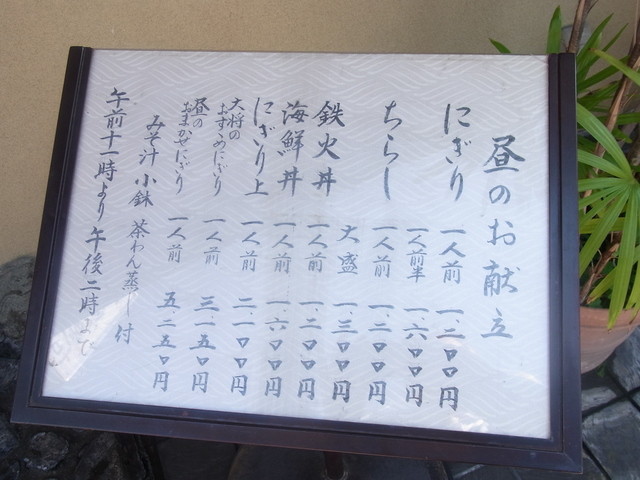 昼のお献立
にぎり 一人前 一、二〇〇円
一人前半 一、六〇〇円
ちらし 一人前 一、二〇〇円
大盛 一、三〇〇円
鉄火丼 一人前 一、二〇〇円
海鮮丼 一人前 一、六〇〇円
にぎり上 一人前 二、一〇〇円
大将のおすすめにぎり 一人前 三一五〇円
昼のおまかせにぎり 一人前 五、二五〇円
みそ汁 小鉢 茶わん蒸し付
午前十一時より 午後二時まで